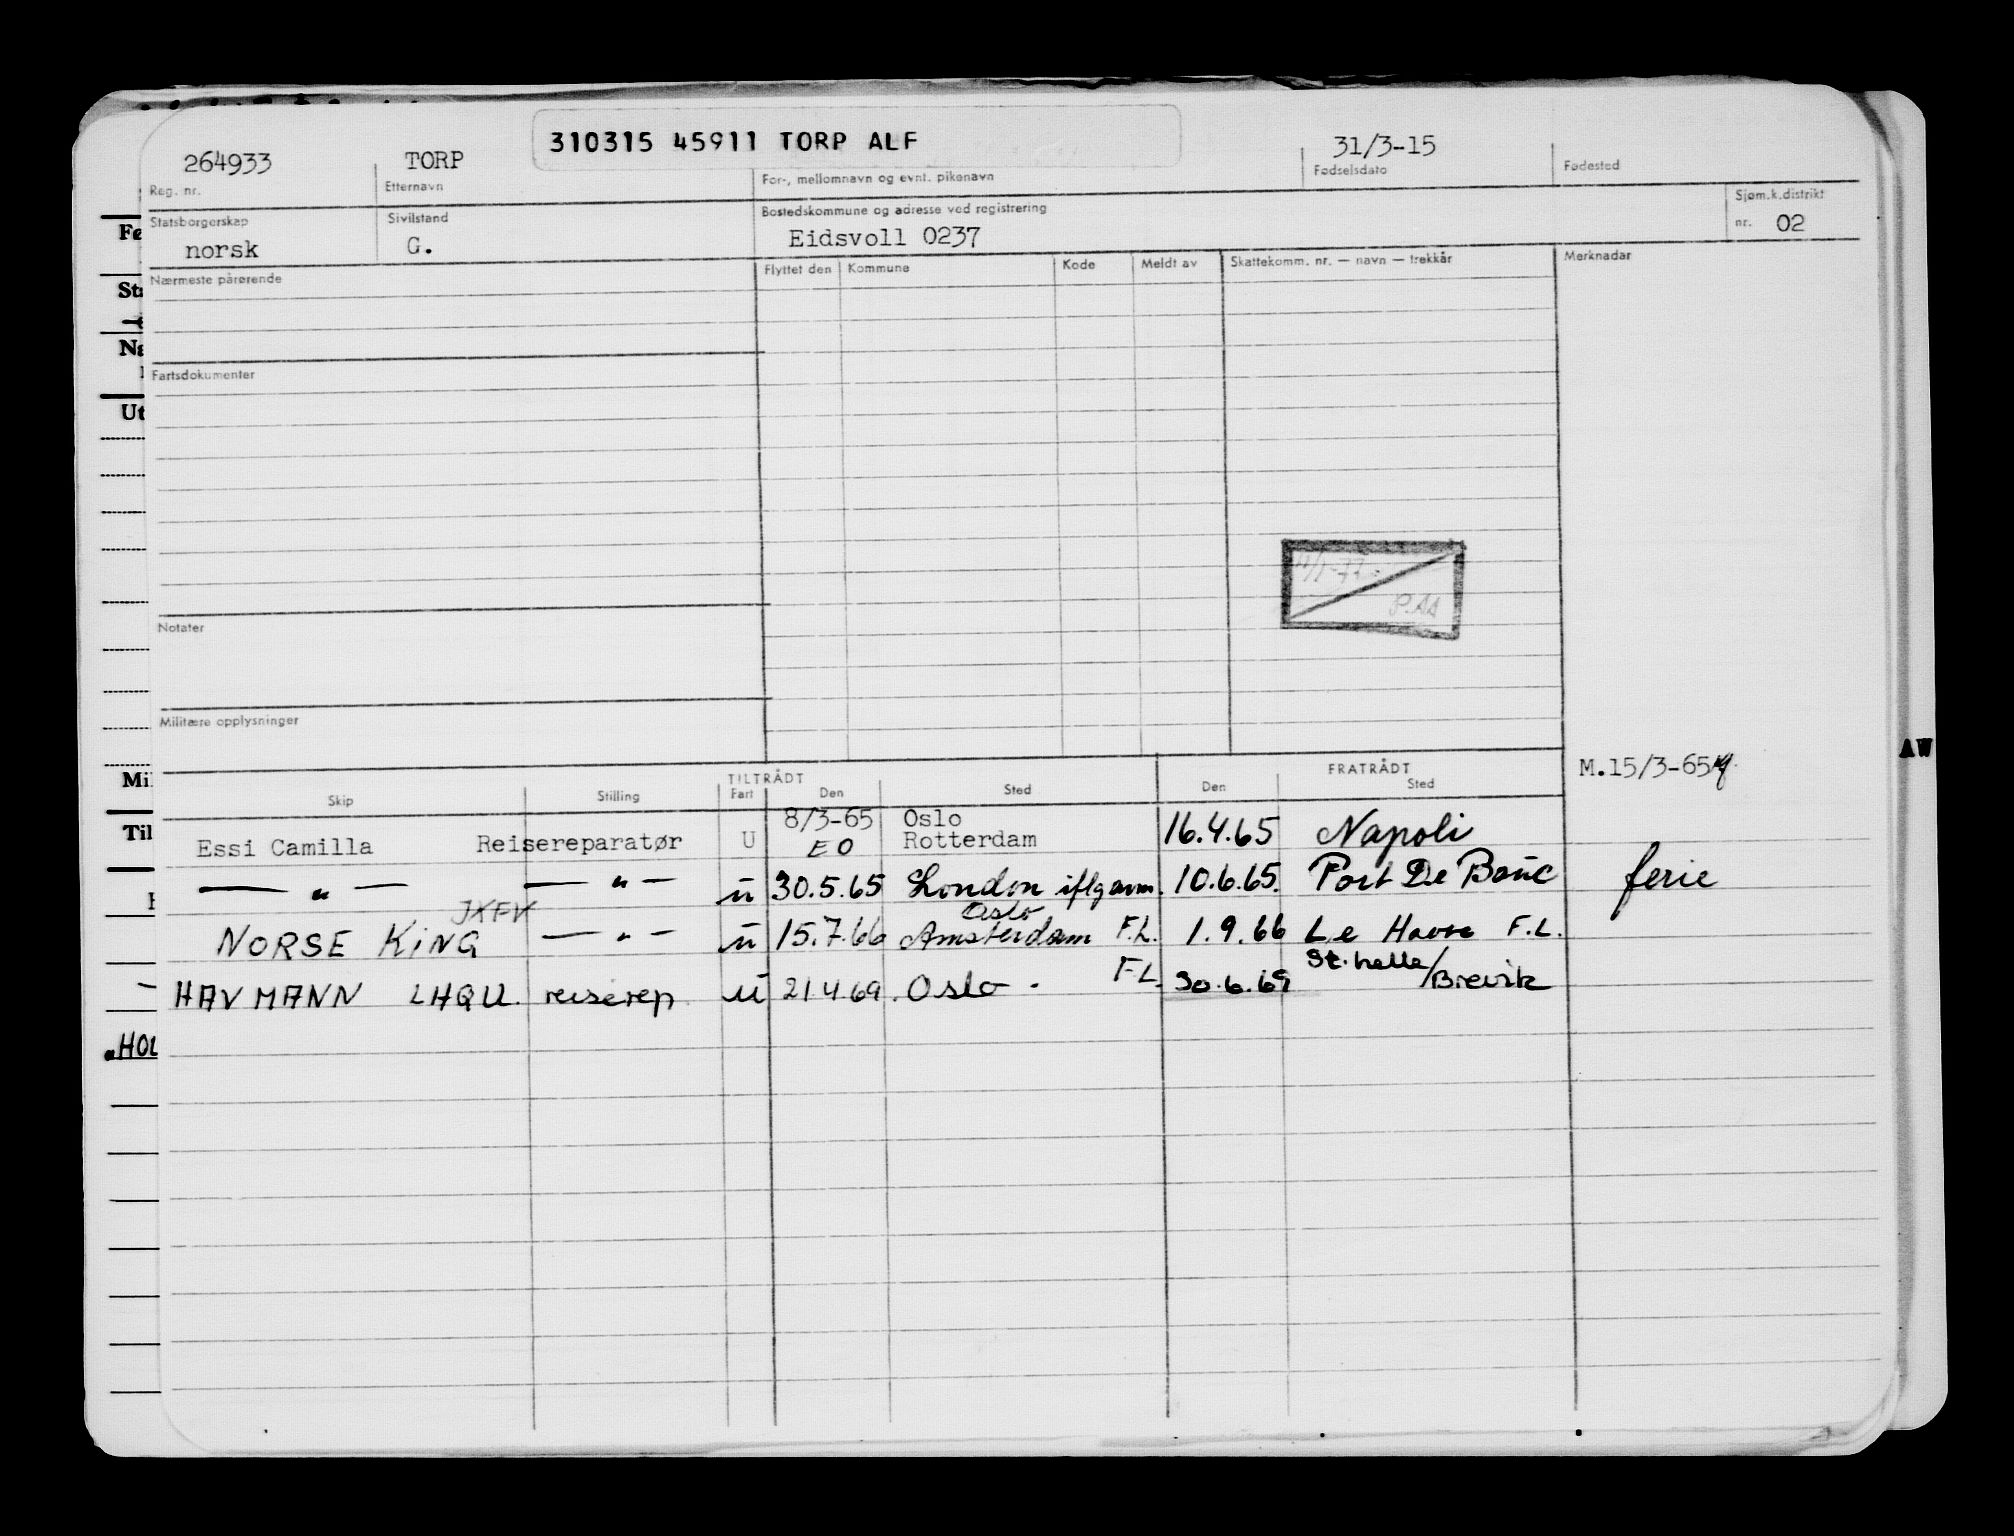 310315 45911 TORP ALF
264933 TORP 31/3-15
Reg. nr. Etternavn For-, mellomnavn og evnt. pikenavn Fødselsdato Fødested
Statsborgerskap Sivilstand Bostedskommune og adresse ved registrering Sjøm.k.distrikt
norsk G. Eidsvoll 0237 nr. 02
Nærmeste pårørende Flyttet den Kommune Kode Meldt av Skattekomm. nr. — navn — trekkår Merknader
Fartsdokumenter
Notater
Militære opplysninger
TILTRÅDT FRATRÅDT M.15/3-65
Skip Stilling Fart Den Sted Den Sted
8/3-65 Oslo
Essi Camilla Reisereparatør U EO Rotterdam 16.4.65 Napoli
— " — — " — u 30.5.65 London iflg avm. 10.6.65. Port De Bouc ferie
JXFV Oslo
NORSE KING — " — u 15.7.66 Amsterdam F.L. 1.9.66 Le Havre F.L.
St. helle/
HAVMANN LHQU. reiserep u 21.4.69. Oslo. F.L. 30.6.69 Brevik
Fø
Sta
Na
Ut
Mil
Til
HOL
AW